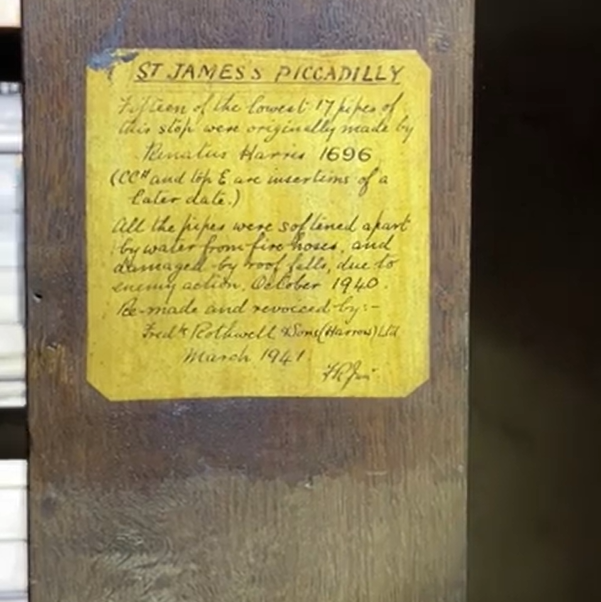 ST JAMES'S PICCADILLY
Fifteen of the lowest 17 pipes of
this stop were originally made by
Renatus Harris 1696
(CC# and top E are insertions of a
later date.)
All the pipes were softened apart
by water from fire hoses, and
damaged by roof falls, due to
enemy action, October 1940.
Re-made and revoiced by:-
Fredk Rothwell & Sons (Harrow) Ltd
March 1941.